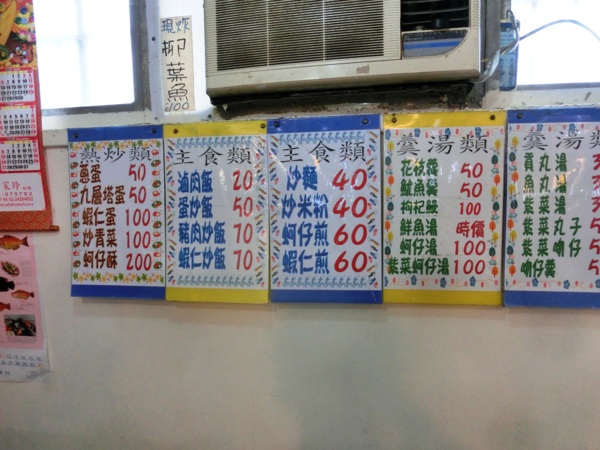 現炸
柳葉魚
100
熱炒類
蔥蛋 50
九層塔蛋 50
蝦仁蛋 100
炒青菜 100
蚵仔酥 200
主食類
滷肉飯 20
蛋炒飯 50
豬肉炒飯 70
蝦仁炒飯 70
主食類
炒麵 40
炒米粉 40
蚵仔煎 60
蝦仁煎 60
羹湯類
花枝羹 50
魷魚羹 50
枸杞鰻 100
鮮魚湯 時價
蚵仔湯 100
紫菜蚵仔湯 100
羹湯類
貢丸湯
魚丸湯
紫菜湯
紫菜丸子
紫菜吻仔
吻仔羹